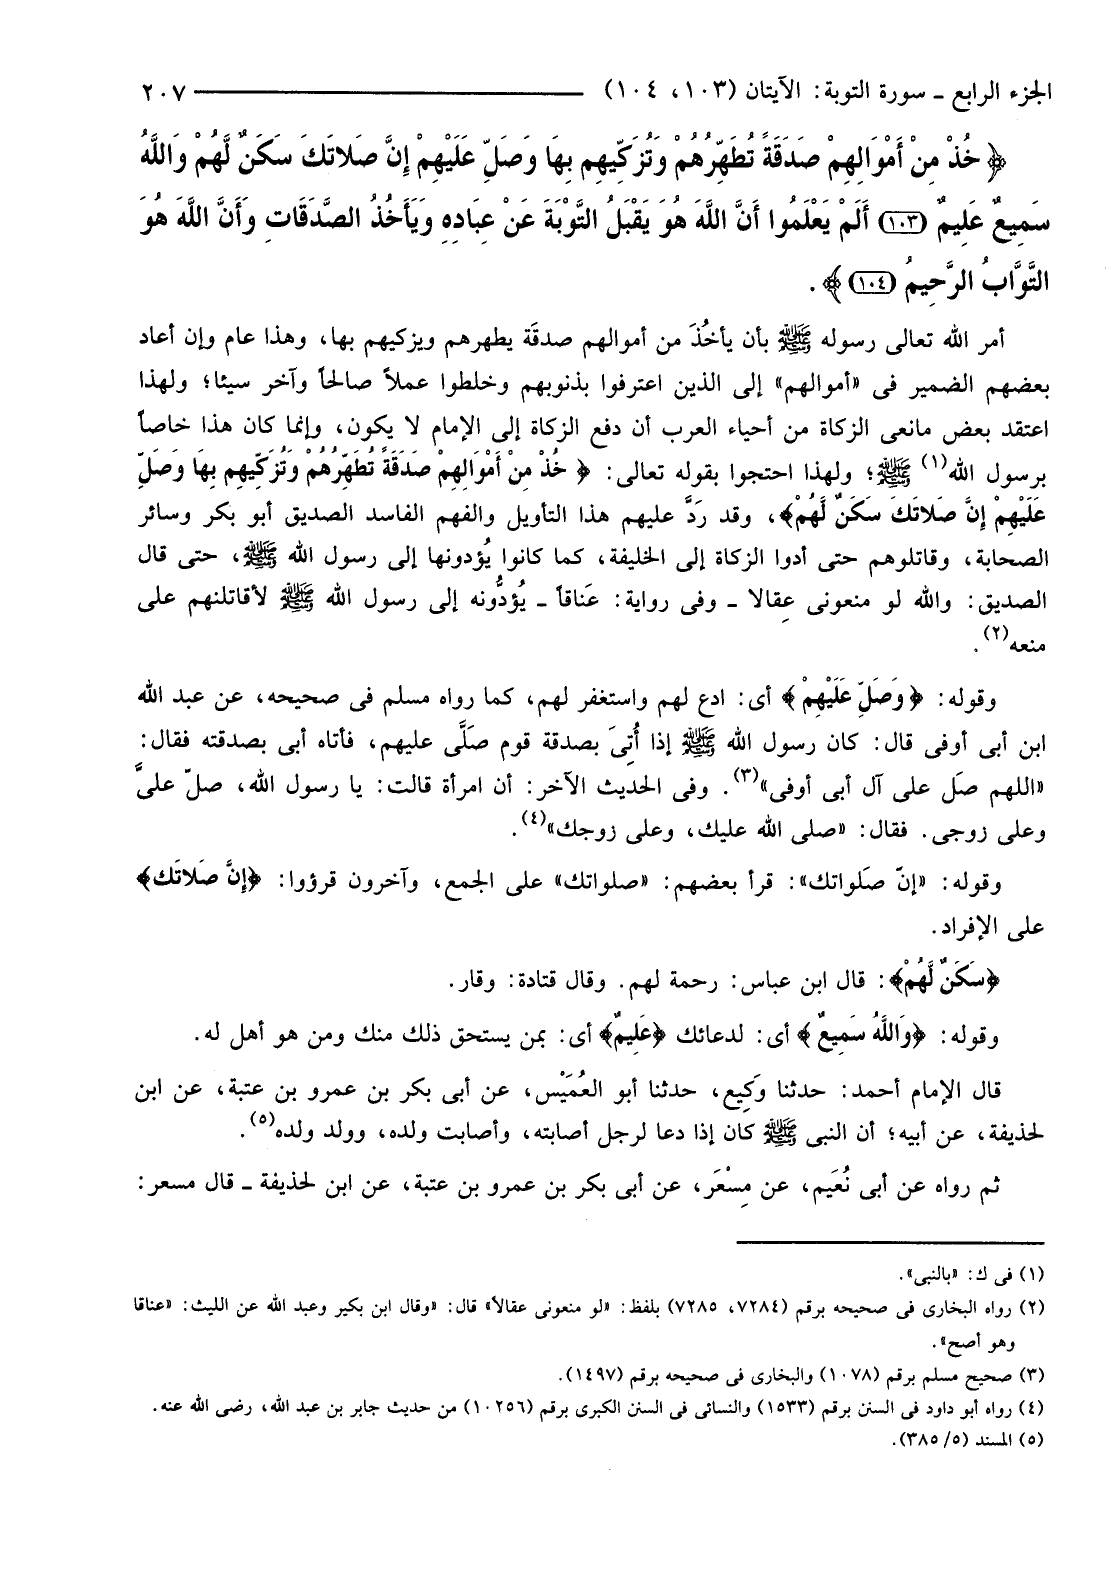 الجزء الرابع ـ سورة التوبة: الآيتان (١٠٣، ١٠٤) ٢٠٧
﴿خُذْ مِنْ أَمْوَالِهِمْ صَدَقَةً تُطَهِّرُهُمْ وَتُزَكِّيهِم بِهَا وَصَلِّ عَلَيْهِمْ إِنَّ صَلاتَكَ سَكَنٌ لَّهُمْ وَاللَّهُ
سَمِيعٌ عَلِيمٌ (١٠٣) أَلَمْ يَعْلَمُوا أَنَّ اللَّهَ هُوَ يَقْبَلُ التَّوْبَةَ عَنْ عِبَادِهِ وَيَأْخُذُ الصَّدَقَاتِ وَأَنَّ اللَّهَ هُوَ
التَّوَّابُ الرَّحِيمُ (١٠٤)﴾ .
أمر الله تعالى رسوله ﷺ بأن يأخُذَ من أموالهم صدقَة يطهرهم ويزكيهم بها، وهذا عام وإن أعاد
بعضهم الضمير فى «أموالهم» إلى الذين اعترفوا بذنوبهم وخلطوا عملاً صالحاً وآخر سيئا؛ ولهذا
اعتقد بعض مانعى الزكاة من أحياء العرب أن دفع الزكاة إلى الإمام لا يكون، وإنما كان هذا خاصاً
برسول الله(١) ﷺ؛ ولهذا احتجوا بقوله تعالى: ﴿ خُذْ مِنْ أَمْوَالِهِمْ صَدَقَةً تُطَهِّرُهُمْ وَتُزَكِّيهِم بِهَا وَصَلِّ
عَلَيْهِمْ إِنَّ صَلاتَكَ سَكَنٌ لَّهُمْ﴾، وقد رَدَّ عليهم هذا التأويل والفهم الفاسد الصديق أبو بكر وسائر
الصحابة، وقاتلوهم حتى أدوا الزكاة إلى الخليفة، كما كانوا يُؤدونها إلى رسول الله ﷺ، حتى قال
الصديق: والله لو منعونى عِقالا ـ وفى رواية: عَناقاً ـ يُؤدُّونه إلى رسول الله ﷺ لأقاتلنهم على
منعه(٢).
وقوله: ﴿ وَصَلِّ عَلَيْهِمْ ﴾ أى: ادع لهم واستغفر لهم، كما رواه مسلم فى صحيحه، عن عبد الله
ابن أبى أوفى قال: كان رسول الله ﷺ إذا أُتِىَ بصدقة قوم صلَّى عليهم، فأتاه أبى بصدقته فقال:
«اللهم صَل على آل أبى أوفى»(٣). وفى الحديث الآخر: أن امرأة قالت: يا رسول الله، صلّ علىَّ
وعلى زوجى. فقال: «صلى الله عليك، وعلى زوجك»(٤).
وقوله: «إنّ صَلواتك»: قرأ بعضهم: «صلواتك» على الجمع، وآخرون قرؤوا: ﴿إِنَّ صَلاتَكَ﴾
على الإفراد.
﴿سَكَنٌ لَّهُمْ﴾: قال ابن عباس: رحمة لهم. وقال قتادة: وقار.
وقوله: ﴿وَاللَّهُ سَمِيعٌ ﴾ أى: لدعائك ﴿عَلِيمٌ﴾ أى: بمن يستحق ذلك منك ومن هو أهل له.
قال الإمام أحمد: حدثنا وَكِيع، حدثنا أبو العُمَيْس، عن أبى بكر بن عمرو بن عتبة، عن ابن
لحذيفة، عن أبيه؛ أن النبى ﷺ كان إذا دعا لرجل أصابته، وأصابت ولده، وولد ولده(٥).
ثم رواه عن أبى نُعَيم، عن مِسْعَر، عن أبى بكر بن عمرو بن عتبة، عن ابن لحذيفة ـ قال مسعر:
(١) فى ك: «بالنبى».
(٢) رواه البخارى فى صحيحه برقم (٧٢٨٤، ٧٢٨٥) بلفظ: «لو منعونى عقالاً» قال: «وقال ابن بكير وعبد الله عن الليث: «عناقا
وهو أصح».
(٣) صحيح مسلم برقم (١٠٧٨) والبخارى فى صحيحه برقم (١٤٩٧).
(٤) رواه أبو داود فى السنن برقم (١٥٣٣) والنسائى فى السنن الكبرى برقم (١٠٢٥٦) من حديث جابر بن عبد الله، رضى الله عنه.
(٥) المسند (٣٨٥/٥).